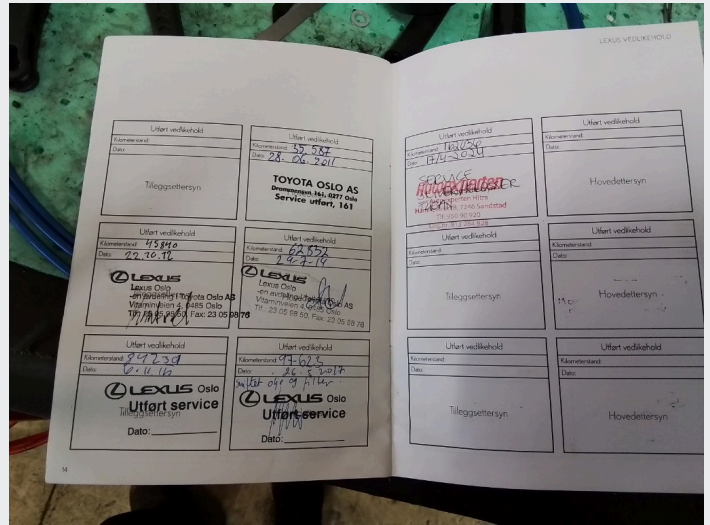 LEXUS VEDLIKEHOLD
Utført vedlikehold
Kilometerstand:
Dato:
Tilleggsettersyn
Utført vedlikehold
Kilometerstand: 35.587
Dato: 28.06.2011
TOYOTA OSLO AS
Drammensvn. 161, 0277 Oslo
Service utført, 161
Utført vedlikehold
Kilometerstand: 45840
Dato: 22.10.12
LEXUS
Lexus Oslo
-en avdeling i Toyota Oslo AS
Vitaminveien 4, 0485 Oslo
Tlf: 23 05 98 50, Fax: 23 05 98 76
Utført vedlikehold
Kilometerstand: 62552
Dato:
LEXUS
Lexus Oslo
-en avdeling i Toyota Oslo AS
Vitaminveien 4, 0485 Oslo
Tlf.: 23 05 98 50, Fax: 23 05 98 76
Utført vedlikehold
Kilometerstand: 84239
Dato: 6.11.16
LEXUS Oslo
Utført service
Tilleggsettersyn
Dato:
Utført vedlikehold
Kilometerstand: 97-623
Dato: 26.5 2017
olje og filter
LEXUS Oslo
Utført service
Dato:
14
Utført vedlikehold
Kilometerstand:
Dato: 17/4-2024
SERVICE
Autoexperten
Autoexperten Hitra
7246 Sandstad
Tlf: 950 90 920
Utført vedlikehold
Kilometerstand:
Dato:
Hovedettersyn
Utført vedlikehold
Kilometerstand:
Dato:
Tilleggsettersyn
Utført vedlikehold
Kilometerstand:
Dato:
Hovedettersyn
Utført vedlikehold
Kilometerstand:
Dato:
Tilleggsettersyn
Utført vedlikehold
Kilometerstand:
Dato:
Hovedettersyn